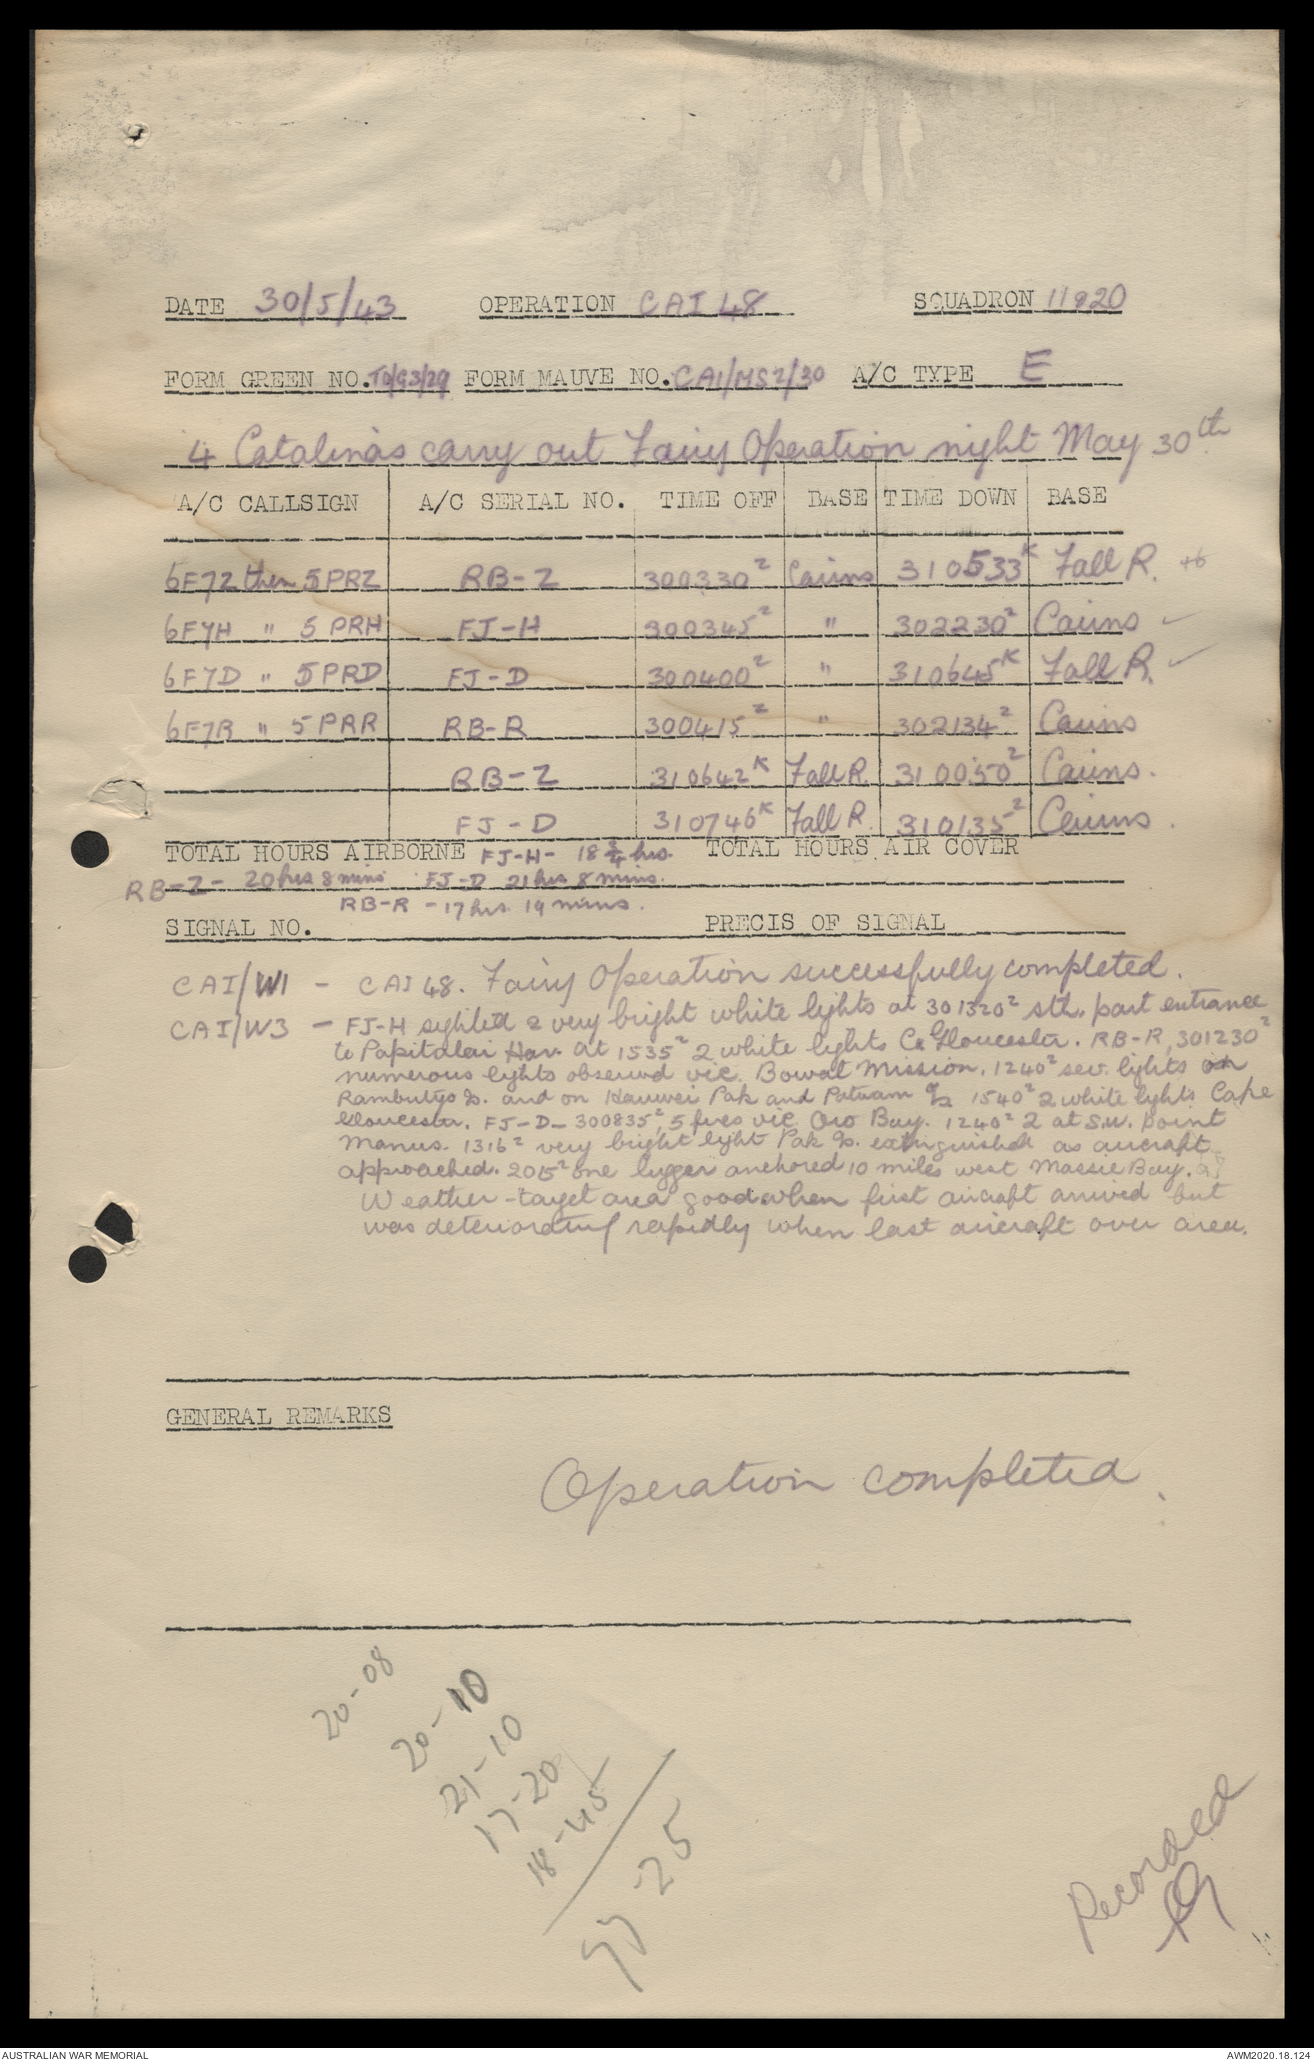 DATE 30/5/43 OPERATION CAI 48 SQUADRON 11&20
FORM GREEN NO. TO/G3/29 FORM MAUVE NO. CAI/MS2/30 A/C TYPE E
4 Catalinas carry out Fairy Operation night May 30th.
A/C CALLSIGN A/C SERIAL NO. TIME OFF BASE TIME DOWN BASE
6F7Z then 5PRZ RB-Z 300330Z Cairns 310533K Fall R.
6F7H " 5PRH FJ-H 300345Z " 302230Z Cairns
6F7D " 5PRD FJ-D 300400Z " 310645K Fall R.
6F7R " 5PRR RB-R 300415Z " 302134Z Cairns
RB-Z 310642K Fall R. 310050Z Cairns.
FJ-D 310746K Fall R. 310135Z Cairns.
TOTAL HOURS AIRBORNE FJ-H- 18 3/4 hrs. TOTAL HOURS AIR COVER
RB-Z- 20 hrs 8 mins FJ-D 21 hrs 8 mins.
RB-R - 17 hrs 19 mins.
SIGNAL NO. PRECIS OF SIGNAL
CAI/W1 - CAI 48. Fairy Operation successfully completed.
CAI/W3 - FJ-H sighted 2 very bright white lights at 301320Z sth. part entrance
to Papitalai Har. at 1535Z 2 white lights C. Gloucester. RB-R, 301230Z
numerous lights observed vic. Bowat Mission. 1240Z sev. lights on
Rambutyo Is. and on Hauwei Pak and Patuam Is 1540Z 2 white lights Cape
Gloucester. FJ-D- 300835Z, 5 fires vic. Oro Bay. 1240Z 2 at S.W. point
Manus. 1316Z very bright light Pak Is. extinguished as aircraft
approached. 2015Z one lugger anchored 10 miles west Massie Bay.
Weather - target area good when first aircraft arrived but
was deteriorating rapidly when last aircraft over area.
GENERAL REMARKS
Operation completed.
20-08
20-10
21-10
17-20
18-45
77-25
Recorded
AUSTRALIAN WAR MEMORIAL AWM2020.18.124